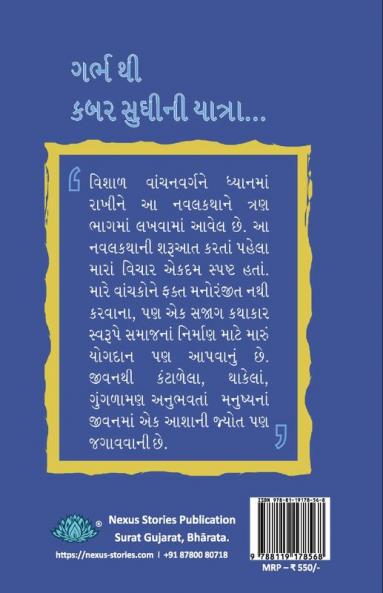 ગર્ભ થી
કબર સુધીની યાત્રા...
વિશાળ વાંચનવર્ગને ધ્યાનમાં
રાખીને આ નવલકથાને ત્રણ
ભાગમાં લખવામાં આવેલ છે. આ
નવલકથાની શરૂઆત કરતાં પહેલા
મારાં વિચાર એકદમ સ્પષ્ટ હતાં.
મારે વાંચકોને ફક્ત મનોરંજીત નથી
કરવાના, પણ એક સજાગ કથાકાર
સ્વરૂપે સમાજનાં નિર્માણ માટે મારું
યોગદાન પણ આપવાનું છે.
જીવનથી કંટાળેલા, થાકેલાં,
ગુંગળામણ અનુભવતાં મનુષ્યનાં
જીવનમાં એક આશાની જ્યોત પણ
જગાવવાની છે.
ISBN 978-81-19178-56-8
Nexus Stories Publication
Surat Gujarat, Bhārata.
https://nexus-stories.com | +91 87800 80718
9 788119 178568
MRP – ₹ 550/-